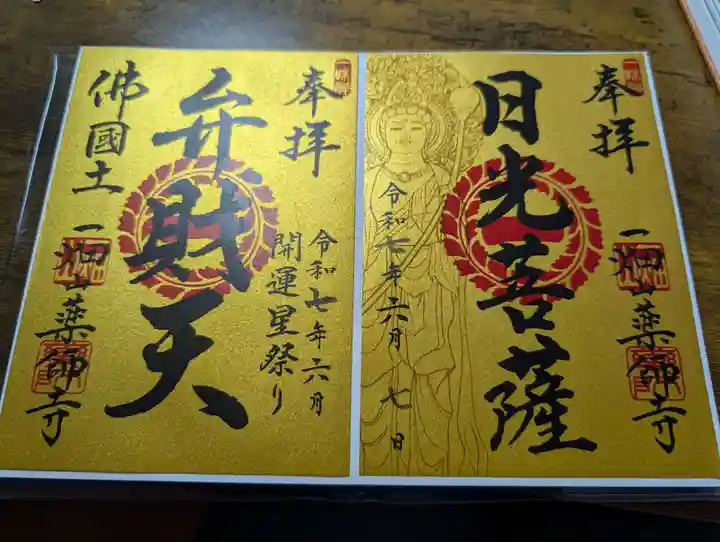 奉拝
日光菩薩
令和七年六月七日
一畑山薬師寺
奉拝
弁財天
令和七年六月
開運星祭り
佛國土
一畑山薬師寺